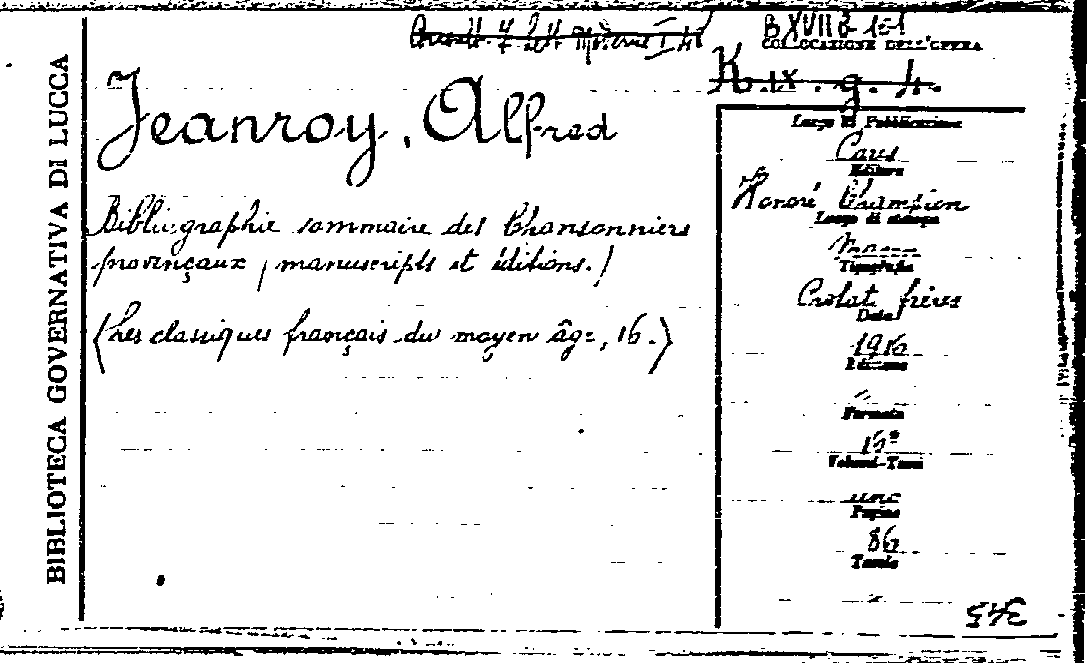 BIBLIOTECA GOVERNATIVA DI LUCCA
B XVII B 151
COLLOCAZIONE DELL'OPERA
K.IX.g.4.
Jeanroy, Alfred
Bibliographie sommaire des Chansonniers
provinçaux, manuscripts et éditions./
(Les classiques français du moyen âge, 16.)
Luogo di Pubblicazione
Editore
Honoré Champion
Luogo di stampa
Tipografia
Crolat frères
Data
1916
Edizione
Formato
16°
Volumi-Tomi
uno
Pagine
86
Tavole